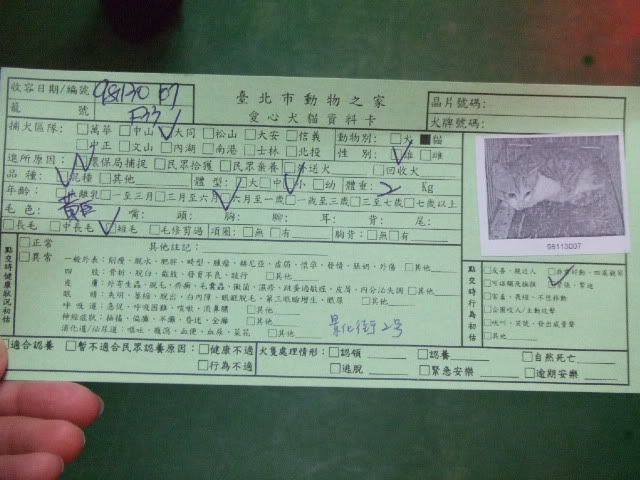 臺北市動物之家
愛心犬貓資料卡
收容日期/編號 981130 07
籠 號 F33
晶片號碼:
犬牌號碼:
捕犬區隊: □萬華 □中山 ☑大同 □松山 □大安 □信義
□中正 □文山 □內湖 □南港 □士林 □北投
動物別: □犬 ■貓
性 別: ☑雄 □雌
進所原因: ☑環保局捕捉 □民眾拾獲 □民眾棄養 □外送犬 □回收犬
品 種: ☑混種 □其他
體 型: □大 □中 ☑小 □幼 體重: 2 Kg
年齡: □離乳 □一至三月 □三月至六月 ☑六月至一歲 □一歲至三歲 □三至七歲 □七歲以上
毛 色: 黃 嘴: 頭: 胸: 腳: 耳: 背: 尾:
□長毛 □中長毛 ☑短毛 □毛修剪過 項圈: □無 □有 胸背: □無 □有
98113007
點交時健康狀況初估
□正常
□異常
其他註記:
一般外表: 削瘦、脫水、肥胖、畸型、腫瘤、赫尼亞、虛弱、懷孕、發情、脹奶、外傷 □其他
四 肢: 骨折、脫臼、截肢、發育不良、跛行 □其他
皮 膚: 外寄生蟲、脫毛、疥癬、毛囊蟲、黴菌、濕疹、跳蚤過敏症、皮屑、內分泌失調 □其他
眼 睛: 失明、萎縮、脫出、白內障、眼瞼脫毛、第三眼瞼增生、眼屎 □其他
呼 吸 道: 急促、呼吸困難、咳嗽、流鼻膿 □其他
神經症狀: 抽搐、偏癱、半癱、昏迷、全癱 □其他
消化道/泌尿道: 嘔吐、腹瀉、血便、血尿、菜花 □其他
景化街2號
點交時行為初估
□友善、親近人
□其他
□適合認養 □暫不適合民眾認養原因: □健康不適
□行為不適
犬隻處理情形: □認領 □認養 □自然死亡
□逃脫 □緊急安樂 □逾期安樂